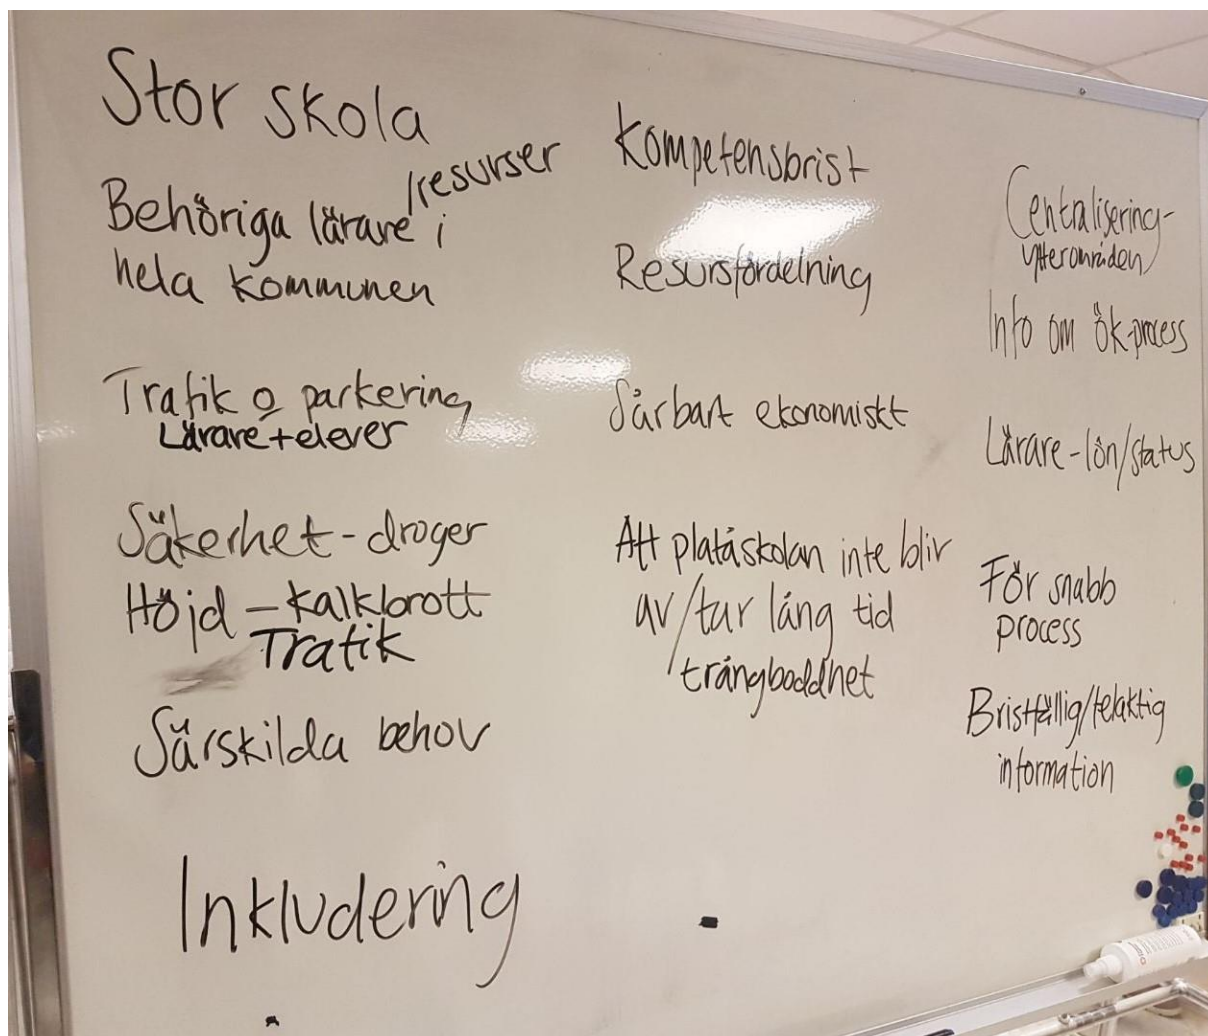 Stor skola
Behöriga lärare i
/resurser
hela kommunen
Trafik o parkering
Lärare + elever
Säkerhet - droger
Höjd - Kalkbrott
Trafik
Särskilda behov
Inkludering
Kompetensbrist
Resursfördelning
Sårbart ekonomiskt
Att platåskolan inte blir
av/tar lång tid
trångboddhet
Centralisering-
ytterområden
Info om ök-process
Lärare - lön/status
För snabb
process
Bristfällig/felaktig
information